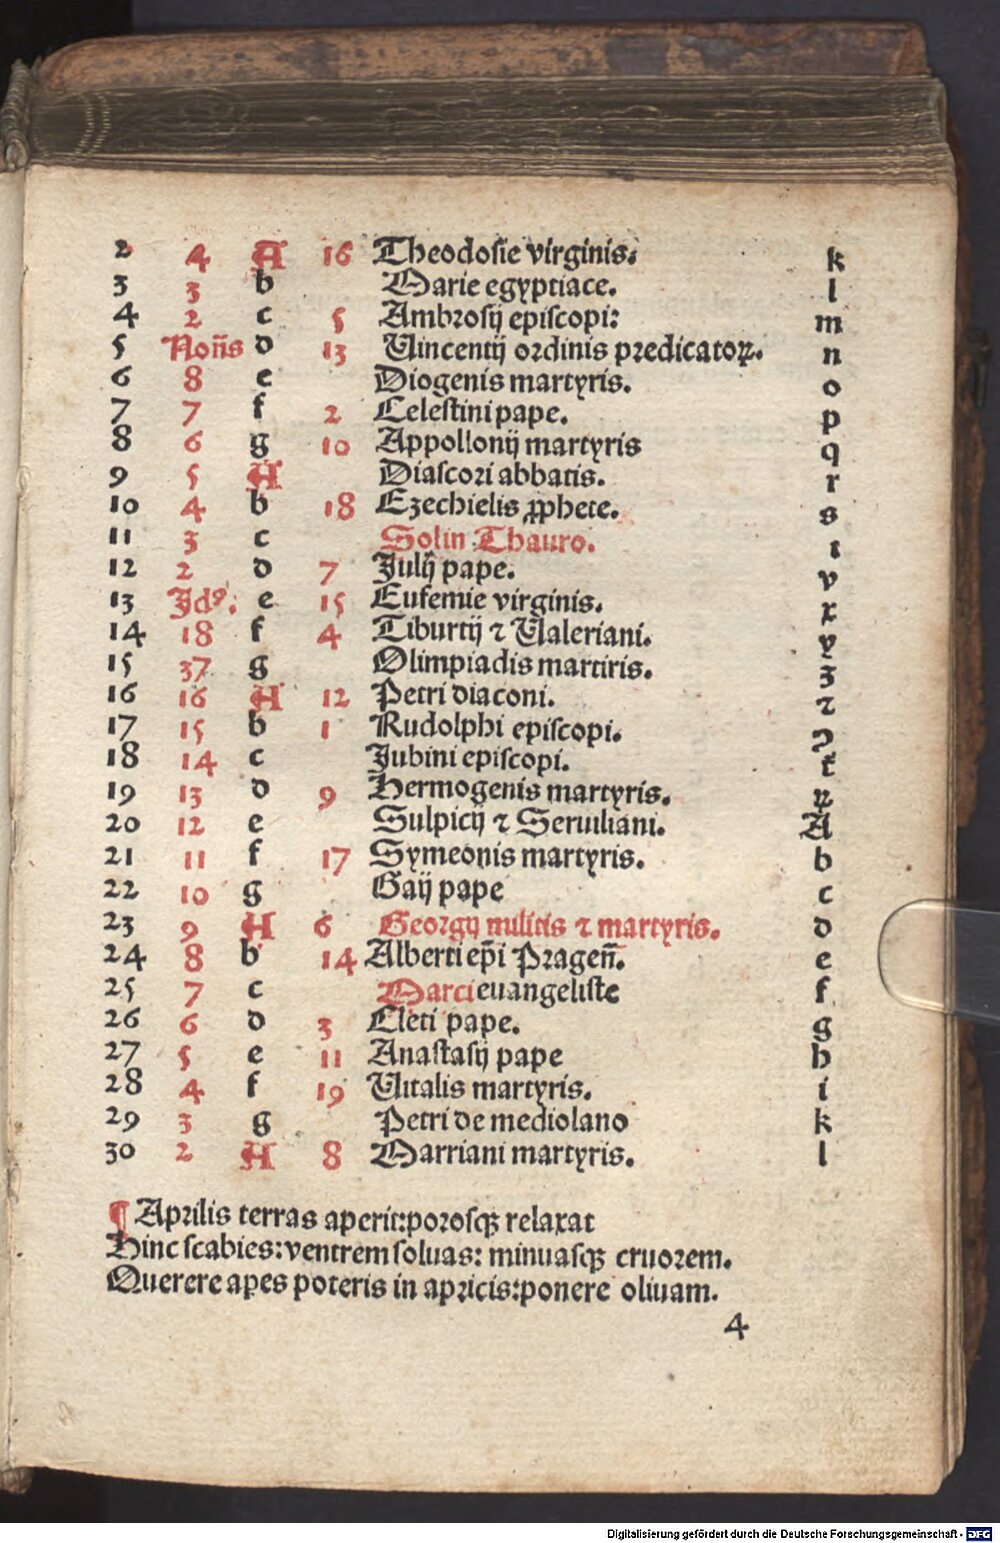 2 4 A 16 Theodosie virginis. k
3 3 b Marie egyptiace. l
4 2 c 5 Ambrosij episcopi: m
5 Noñs d 13 Vincentij ordinis predicatoꝝ. n
6 8 e Diogenis martyris. o
7 7 f 2 Celestini pape. p
8 6 g 10 Appollonij martyris q
9 5 A Diascori abbatis. r
10 4 b 18 Ezechielis ꝓphete. s
11 3 c Sol in Thauro. t
12 2 d 7 Julij pape. v
13 Jdꝰ. e 15 Eufemie virginis. x
14 18 f 4 Tiburtij ⁊ Valeriani. y
15 37 g Olimpiadis martiris. z
16 16 A 12 Petri diaconi. ⁊
17 15 b 1 Rudolphi episcopi. ꝯ
18 14 c Jubini episcopi. t
19 13 d 9 Hermogenis martyris. ꝝ
20 12 e Sulpicij ⁊ Seruiliani. A
21 11 f 17 Symeonis martyris. b
22 10 g Gaij pape c
23 9 A 6 Georgij militis ⁊ martyris. d
24 8 b 14 Alberti ep̄i Pragen̄. e
25 7 c Marci euangeliste f
26 6 d 3 Cleti pape. g
27 5 e 11 Anastasij pape h
28 4 f 19 Vitalis martyris. i
29 3 g Petri de mediolano k
30 2 A 8 Marriani martyris. l
¶ Aprilis terras aperit: porosqꝫ relaxat
Hinc scabies: ventrem soluas: minuasqꝫ cruorem.
Querere apes poteris in apricis: ponere oliuam.
4
Digitalisierung gefördert durch die Deutsche Forschungsgemeinschaft - DFG